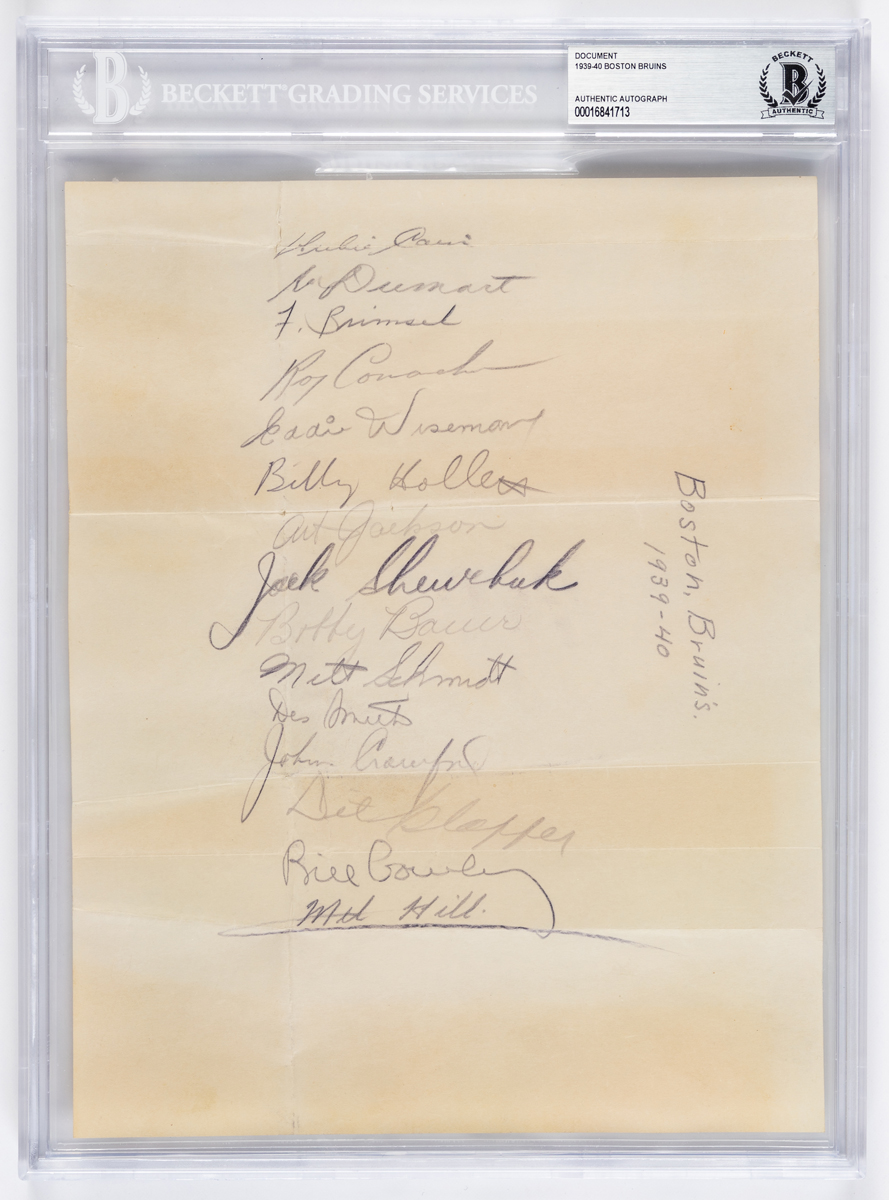 BECKETT GRADING SERVICES
DOCUMENT
1939-40 BOSTON BRUINS
AUTHENTIC AUTOGRAPH
00016841713
BECKETT
B
AUTHENTIC
Dumart
F. Brimsek
Roy Conacher
Eddie Wiseman
Billy Hollett
Art Jackson
Jack Shewchuk
Bobby Bauer
Milt Schmidt
Des Smith
John Crawford
Dit Clapper
Bill Cowley
Mel Hill.
Boston, Bruins.
1939-40